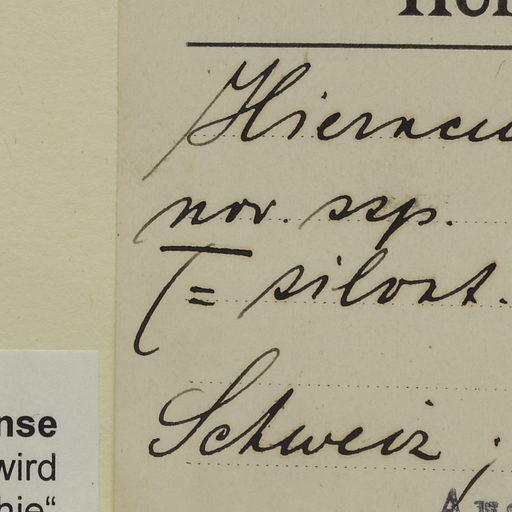 Hieraciu
nov. ssp.
(= silvat.
Schweiz,
nse
wird
hie“